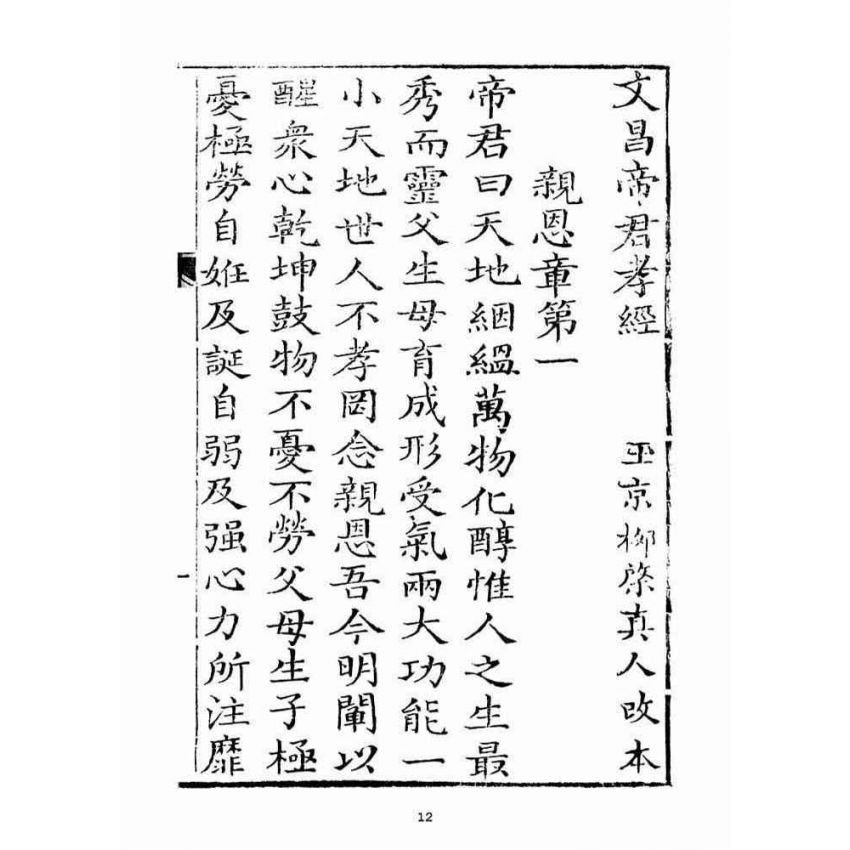 文昌帝君孝經 玉京柳真人改本
親恩章第一
帝君曰天地絪縕萬物化醇惟人之生最
秀而靈父生母育成形受氣兩大功能一
小天地世人不孝罔念親恩吾今明闡以
醒衆心乾坤鼓物不憂不勞父母生子極
憂極勞自姙及誕自弱及强心力所注靡
一
12